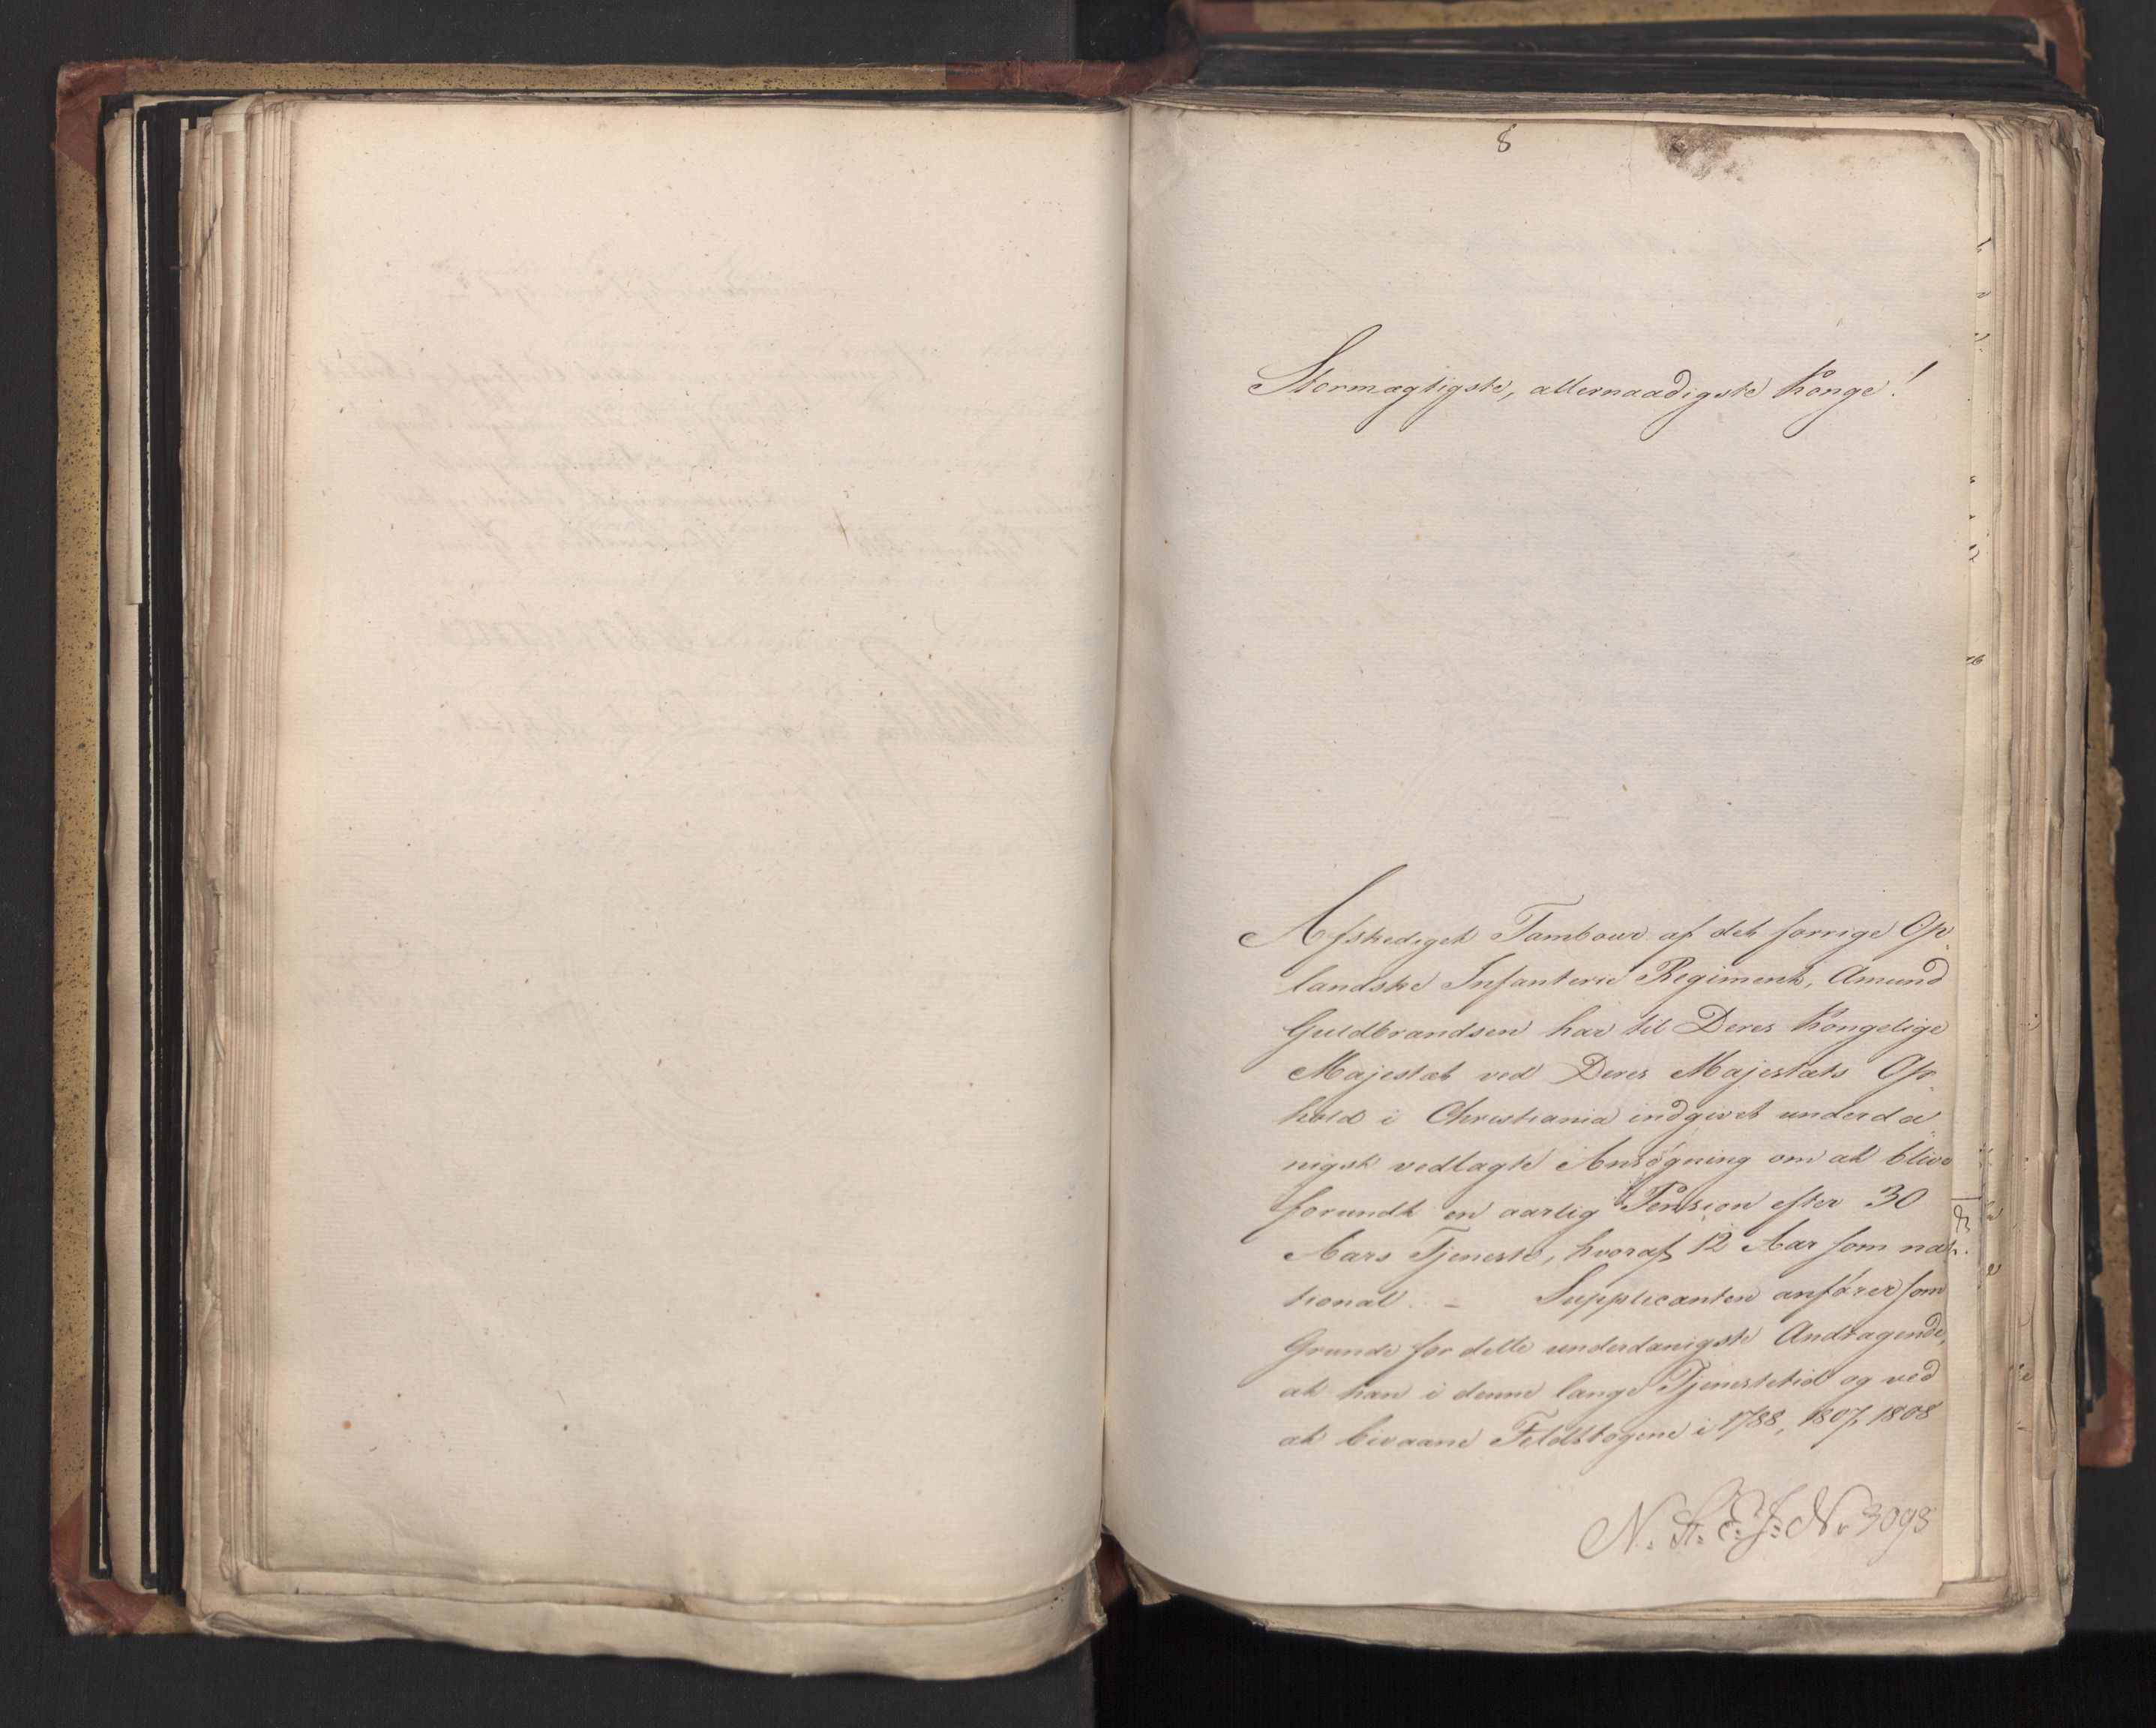 8
Stormægtigste, allernaadigste Konge!
Afskediget Tambour af det forrige Op„
landske Infanterie Regiment, Amund
Guldbrandsen har til Deres Kongelige
Majestæt ved Deres Majestæts Op„
hold i Christiania indgivet underda„
nigst vedlagte Ansøgning om at blive
forundt en aarlig Pension efter 30
Aars Tjeneste, hvoraf 12 Aar som na„
tional. – Supplicanten anfører som
Grunde for dette underdanigste Andragende,
at han i denne lange Tjenestetid og ved
at bivaane Feldttogene i 1788, 1807, 1808
N. St. E. J: Nr 3098